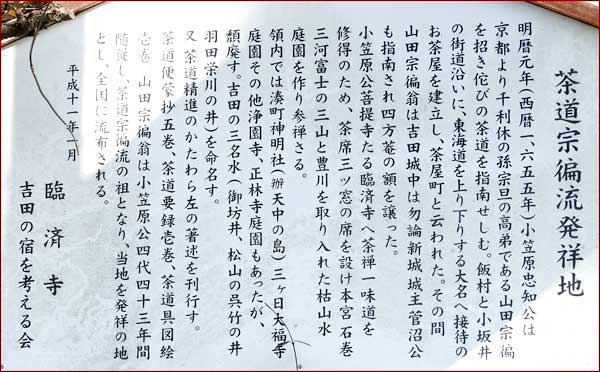 茶道宗徧流発祥地
明暦元年(西暦一、六五五年)小笠原忠知公は
京都より千利休の孫宗旦の高弟である山田宗徧
を招き侘びの茶道を指南せしむ。飯村と小坂井
の街道沿いに、東海道を上り下りする大名へ接待の
お茶屋を建立し、茶屋町と云われた。その間
山田宗徧翁は吉田城中は勿論新城城主菅沼公
も指南され四方菴の額を譲った。
小笠原公菩提寺たる臨済寺へ茶禅一味道を
修得のため、茶席三ツ窓の席を設け本宮石巻
三河富士の三山と豊川を取り入れた枯山水
庭園を作り参禅さる。
領内では湊町神明社(辦天中の島)三ヶ日大福寺
庭園その他浄圓寺、正林寺庭園もあったが、
頽廃す。吉田の三名水(御坊井、松山の呉竹の井
羽田栄川の井)を命名す。
又、茶道精進のかたわら左の著述を刊行す。
茶道便蒙抄五巻、茶道要録壱巻、茶道具図絵
壱巻、山田宗徧翁は小笠原公四代四十三年間
随従し、茶道宗徧流の祖となり、当地を発祥の地
とし、全国に流布される。
平成十一年一月
臨済寺
吉田の宿を考える会